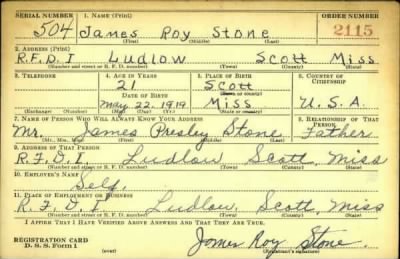 SERIAL NUMBER 1. NAME (Print) ORDER NUMBER
504 James Roy Stone 2115
(First) (Middle) (Last)
2. ADDRESS (Print)
R.F.D. I Ludlow Scott Miss
(Number and street or R. F. D. number) (Town) (County) (State)
3. TELEPHONE 4. AGE IN YEARS 5. PLACE OF BIRTH 6. COUNTRY OF CITIZENSHIP
21 Scott
DATE OF BIRTH (Town or county)
May 22, 1919 Miss U.S.A.
(Exchange) (Number) (Mo.) (Day) (Yr.) (State or country)
7. NAME OF PERSON WHO WILL ALWAYS KNOW YOUR ADDRESS 8. RELATIONSHIP OF THAT PERSON
Mr. James Presley Stone Father
(Mr., Mrs., Miss) (First) (Middle) (Last)
9. ADDRESS OF THAT PERSON
R.F.D.I. Ludlow Scott, Miss
(Number and street or R. F. D. number) (Town) (County) (State)
10. EMPLOYER'S NAME
Self.
11. PLACE OF EMPLOYMENT OR BUSINESS
R.F.D.I. Ludlow, Scott, Miss
(Number and street or R. F. D. number) (Town) (County) (State)
I AFFIRM THAT I HAVE VERIFIED ABOVE ANSWERS AND THAT THEY ARE TRUE.
REGISTRATION CARD
D. S. S. Form 1 (over) James Roy Stone.
(Registrant's signature)